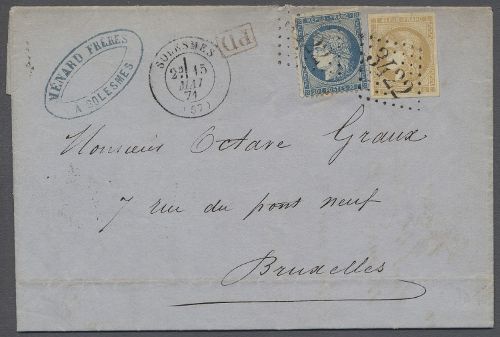 MÉNARD FRÈRES
A SOLESMES
SOLESMES
2E 15
MAI
71
(57)
P.D.
REPUB. FRANC.
POSTES
REPUB. FRANC.
3422
Monsieur Octave Graux
7 rue du pont neuf
Bruxelles